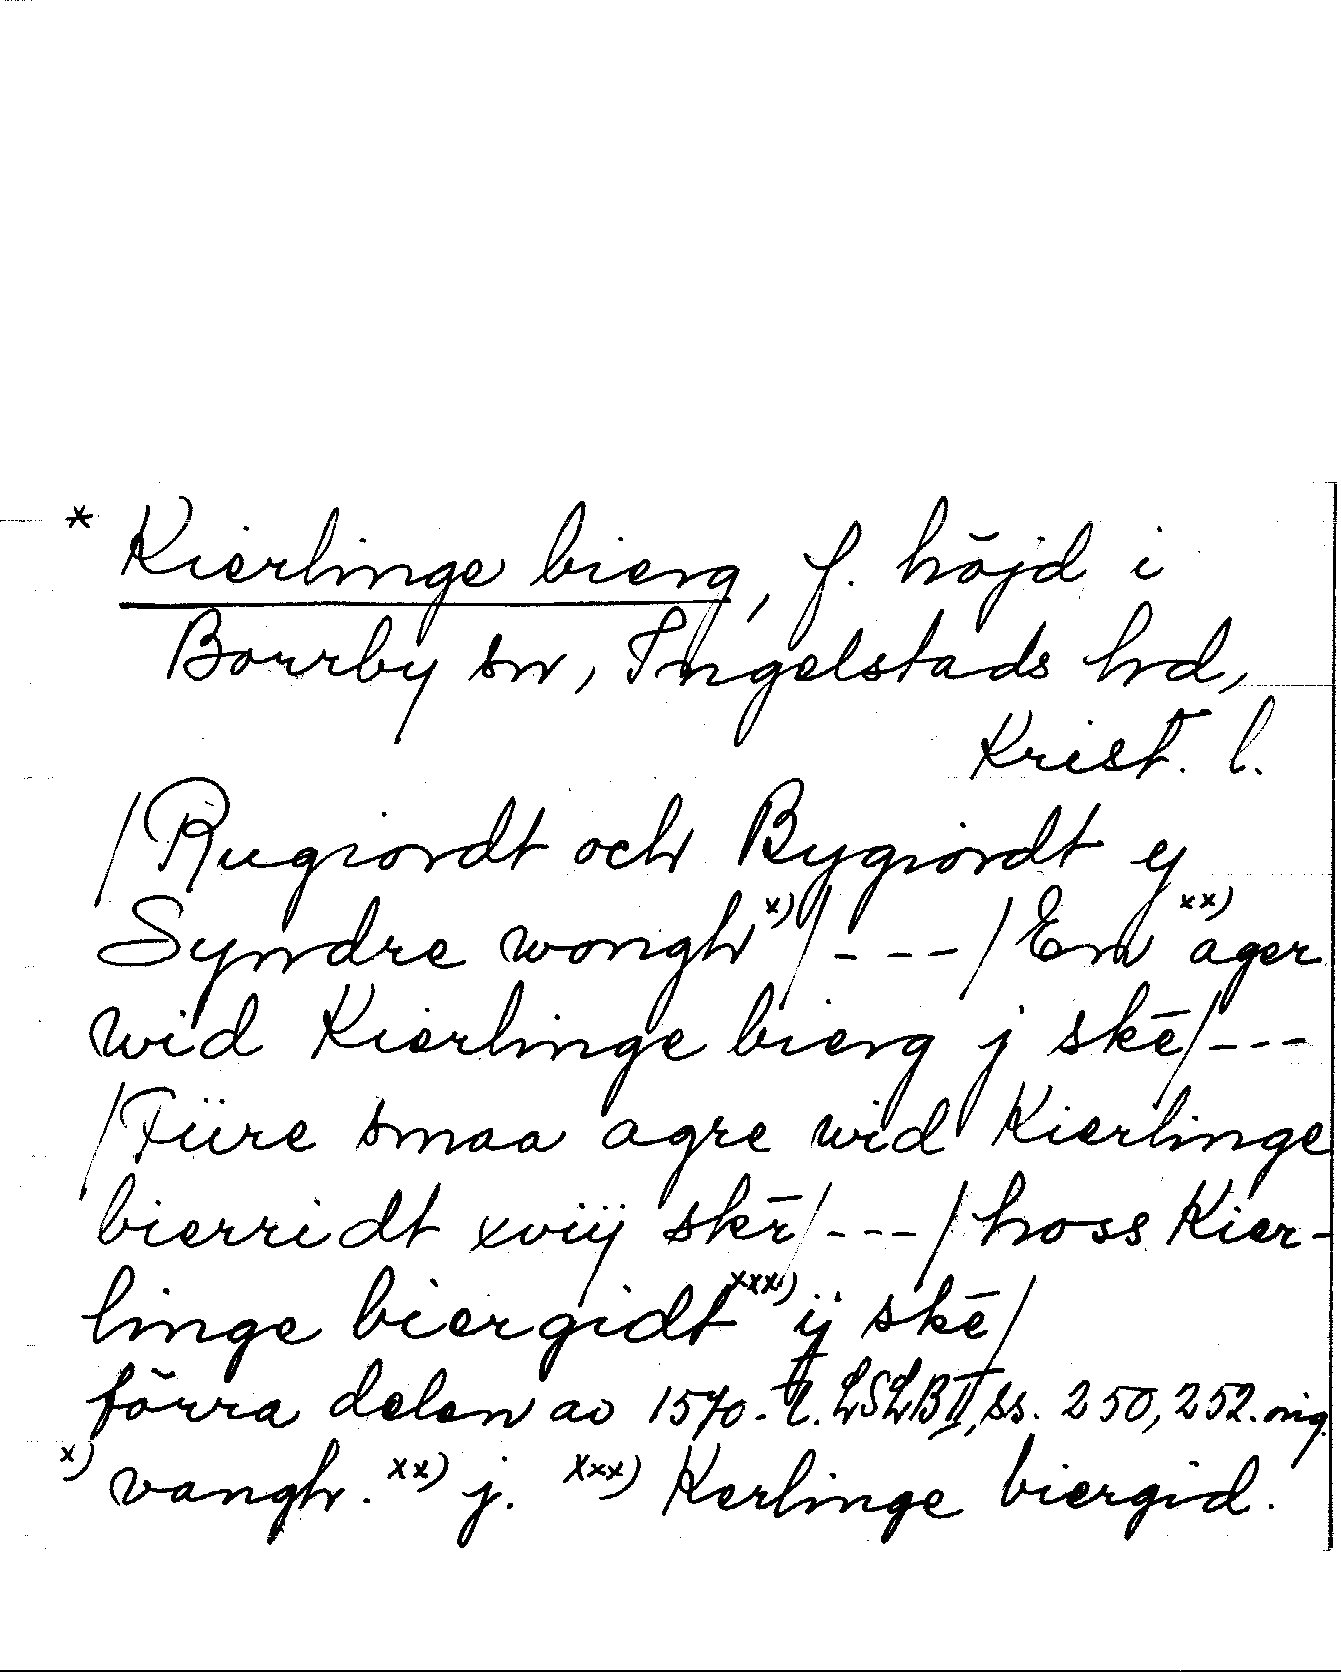 * Kierlinge bierg, f. höjd i
Borrby sn, Ingelstads hd,
Krist. l.
/Rugiordt och Bygiordt ej
Syndre wongh x)/---/En xx) ager
wid Kierlinge bierg j skē/---
/Fiire smaa agre wid Kierlinge
bierridt xviij skr̄/---/hoss Kier-
linge biergidt xxx) ij skē/
förra delen av 1570-t. LSLB II, ss. 250, 252. orig.
x) vangh. xx) j. xxx) Kerlinge biergid.